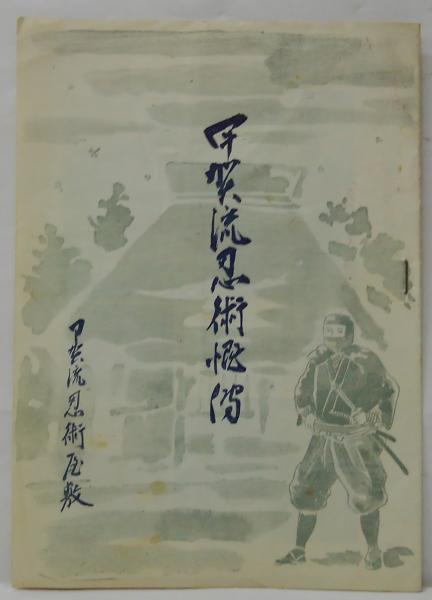 甲賀流忍術
甲賀流忍術屋敷